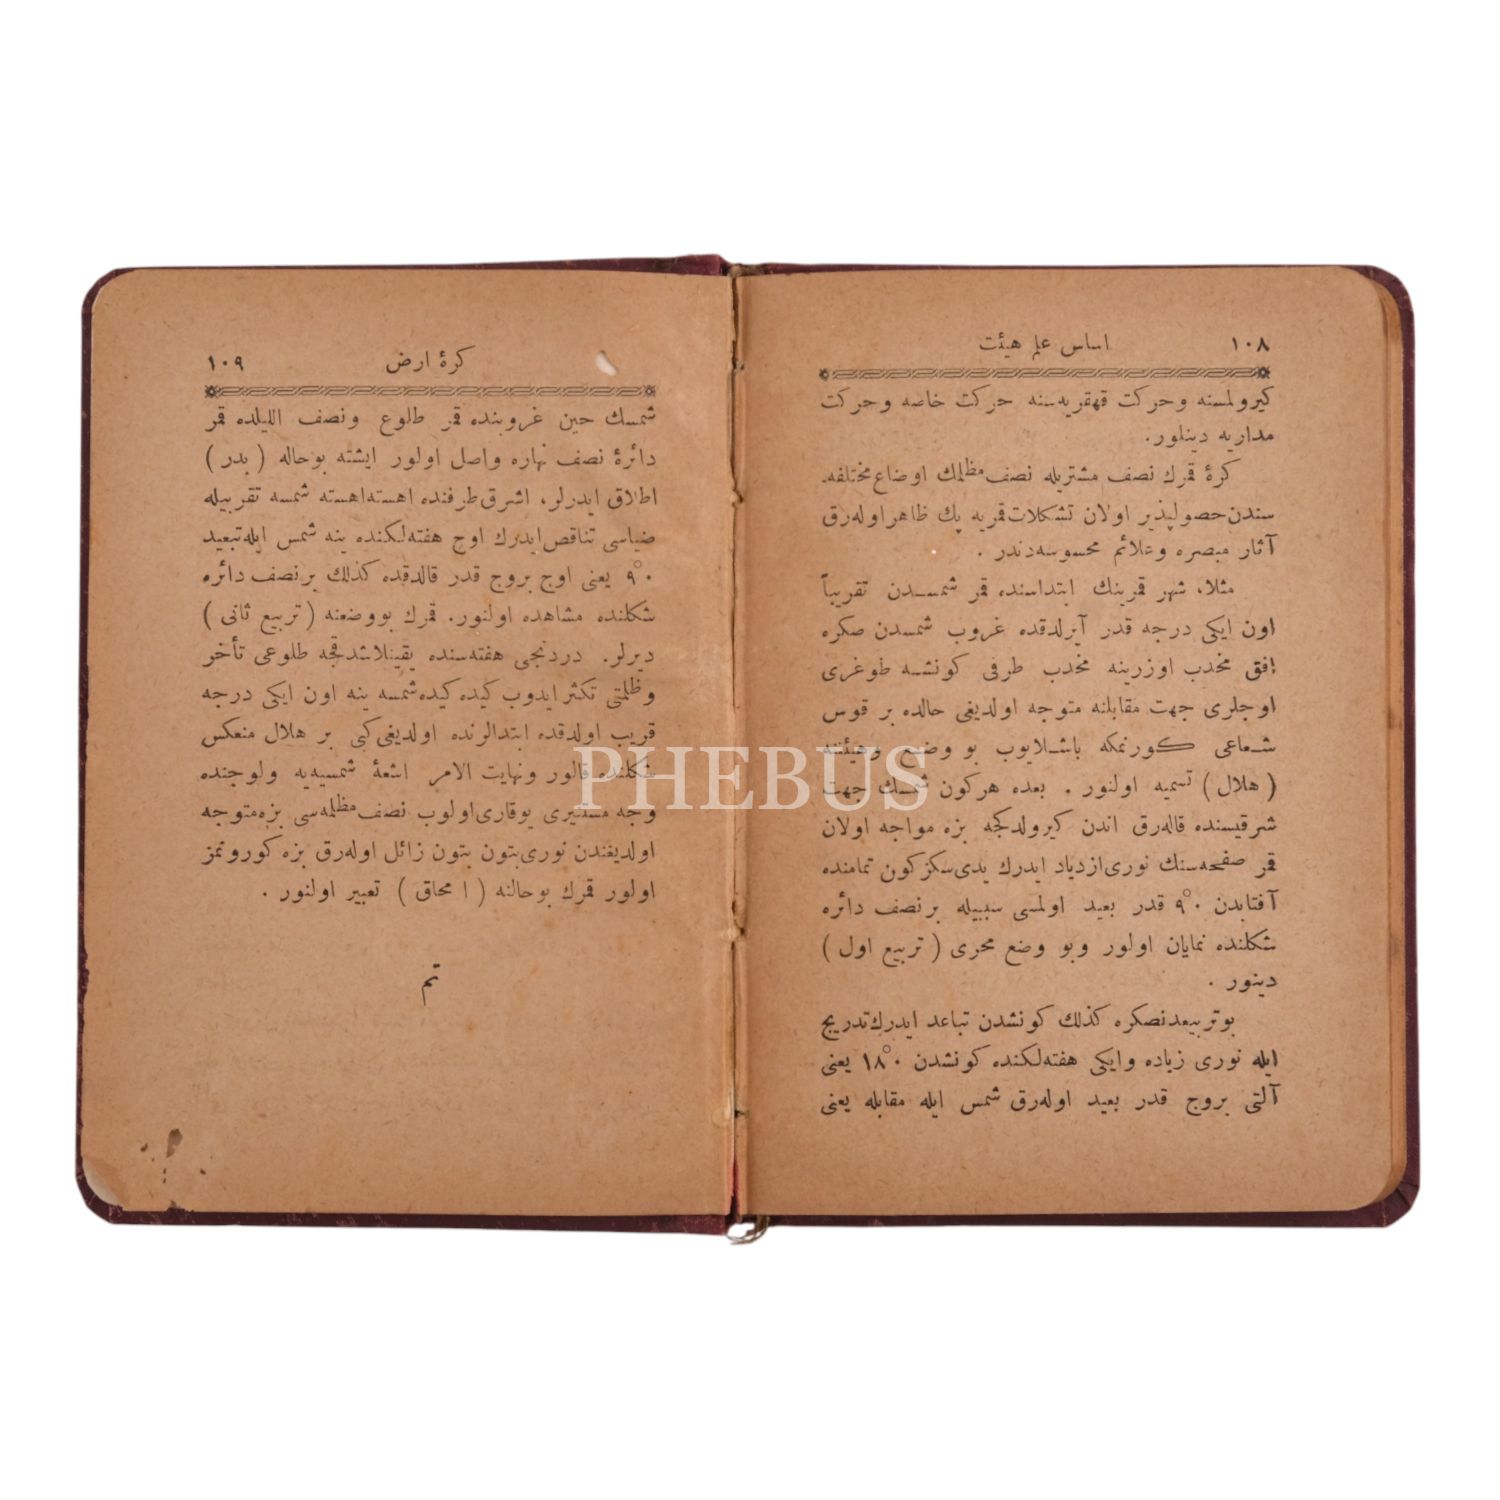 ١٠٨
اساس علم هيئت
كيرولمسنه وحركت قهقريه‌سنه حركت خاصه وحركت
مداريه دينلور.
كرۀ قمرك نصف مشتريله نصف مظلمك اوضاع مختلفه‌
سندن حصولپذير اولان تشكلات قمريه پك ظاهر اوله‌رق
آثار مبصره وعلائم محسوسه‌دندر .
مثلا، شهر قمرينك ابتداسنده قمر شمسدن تقريباً
اون ايكى درجه قدر آيرلدقده غروب شمسدن صكره
افق محدب اوزرينه محدب طرفى كونشه طوغرى
اوجلرى جهت مقابلنه متوجه اولديغى حالده بر قوس
شعاعى كورنمكه باشلايوب بو وضع وهيئتنه
( هلال ) تسميه اولنور . بعده هركون شمسك جهت
شرقيسنده قاله‌رق اندن كيرولدكجه بزه مواجه اولان
قمر صفحه‌سنك نورى ازدياد ايدرك يدى سكز كون تمامنده
آفتابدن ٩٠° قدر بعيد اولمسى سببيله بر نصف دائره
شكلنده نمايان اولور وبو وضع محرى ( تربيع اول )
دينور .
بو تربيعدنصكره كذلك كونشدن تباعد ايدرك تدريج
ايله نورى زياده وايكى هفته‌لكنده كونشدن ١٨٠° يعنى
آلتى بروج قدر بعيد اوله‌رق شمس ايله مقابله يعنى
كرۀ ارض
١٠٩
شمسك حين غروبنده قمر طلوع ونصف الليلده قمر
دائرۀ نصف نهاره واصل اولور ايشته بوحاله ( بدر )
اطلاق ايدرلر، اشرق طرفنده اهسته اهسته شمسه تقربيله
ضياسى تناقص ايدرك اوچ هفته‌لكنده ينه شمس ايله تبعيد
٩٠° يعنى اوچ بروج قدر قالدقده كذلك بر نصف دائره
شكلنده مشاهده اولنور. قمرك بووضعنه ( تربيع ثانى )
ديرلر. دردنجى هفته‌سنده يقينلاشدقجه طلوعى تأخر
وظلمتى تكثر ايدوب كيده كيده شمسه ينه اون ايكى درجه
قريب اولدقده ابتدالرنده اولديغى كبى بر هلال منعكس
شكلنده قالور ونهايت الامر اشعۀ شمسيه‌يه ولوجنده
وجه مستنيرى يوقارى اولوب نصف مظلمه‌سى بزه متوجه
اولديغندن نورى بتون بتون زائل اوله‌رق بزه كورونمز
اولور قمرك بوحالنه ( ا محاق ) تعبير اولنور .
تم
PHEBUS